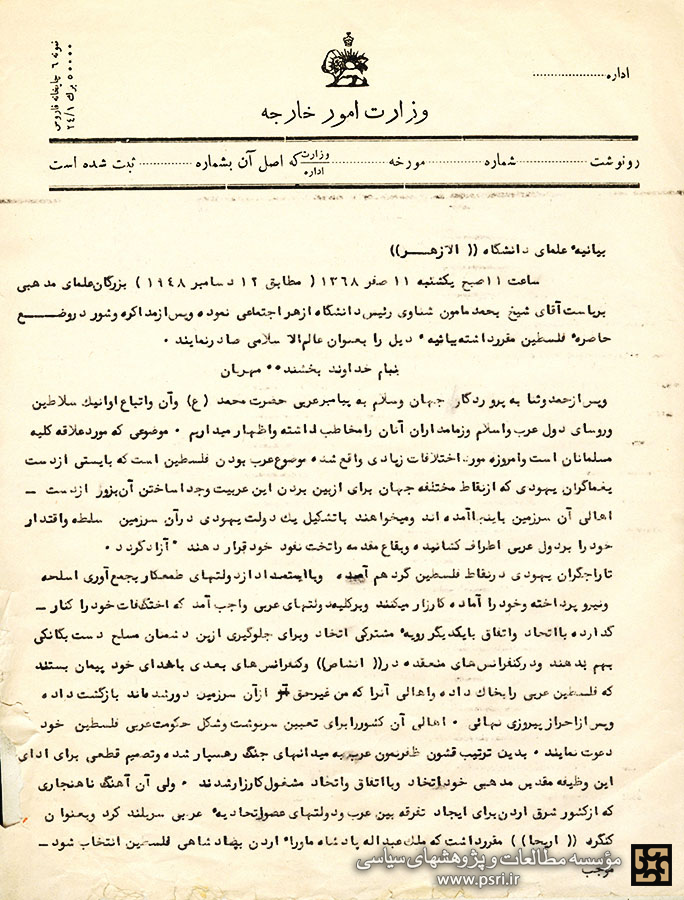 نمونه ۶ چاپخانه فردوسی
۵۰۰۰۰ برگ ۲۴/۱
اداره
وزارت امور خارجه
رونوشت شماره مورخه وزارت اداره که اصل آن بشماره ثبت شده است
بیانیه علمای دانشگاه (( الازهر ))
ساعت ۱۱ صبح یکشنبه ۱۱ صفر ۱۳۶۸ ( مطابق ۱۲ دسامبر ۱۹۴۸ ) بزرگان علمای مذهبی
بریاست آقای شیخ محمد مامون شناوی رئیس دانشگاه ازهر اجتماعی نموده وپس از مذاکره وشور در وضع
حاضره فلسطین مقرر داشته بیانیه ذیل را بعنوان عالم الاسلامی صادر نمایند .
بنام خداوند بخشنده مهربان
وپس از حمد وثنا به پروردگار جهان وسلام به پیامبر عربی حضرت محمد (ع) وآن واتباع او اینک سلاطین
وروسای دول عرب واسلام وزمامداران آنان را مخاطب داشته واظهار میداریم . موضوعی که مورد علاقه کلیه
مسلمانان است وامروزه مورد اختلافات زیادی واقع شده موضوع عرب بودن فلسطین است که بایستی از دست
یغماگران یهودی که از نقاط مختلفه جهان برای از بین بردن این عربیت وجدا ساختن آن بزور از دست ـ
اهالی آن سرزمین باینجا آمده اند ومیخواهند با تشکیل یک دولت یهودی در آن سرزمین سلطه واقتدار
خود را بر دول عربی اطراف کشانیده وبقاع مقدسه را تحت نفوذ خود قرار دهند آزاد گردد .
تاراجگران یهودی در نقاط فلسطین گرد هم آمده وبا استمداد از دولتهای طمعکار بجمع آوری اسلحه
ونیرو پرداخته وخود را آماده کارزار میکنند وبر کلیه دولتهای عربی واجب آمد که اختلافات خود را کنار ـ
گذارده با اتحاد واتفاق بایکدیگر رویه مشترکی اتخاذ وبرای جلوگیری از این دشمنان مسلح دست یگانگی
بهم بدهند ودر کنفرانس های منعقده در (( انشاص )) وکنفرانس های بعدی با خدای خود پیمان بستند
که فلسطین عربی را نجات داده واهالی آنرا که من غیر حق از آن سرزمین دور شده اند بازگشت داده
وپس از احراز پیروزی نهائی . اهالی آن کشور را برای تعیین سرنوشت وشکل حکومت عربی فلسطین خود
دعوت نمایند . بدین ترتیب قشون ظفرنمون عرب به میدانهای جنگ رهسپار شده وتصمیم قطعی برای ادای
این وظیفه مقدس مذهبی خود اتخاذ وبا اتفاق واتحاد مشغول کارزار شدند . ولی آن آهنگ ناهنجاری
که از کشور شرق اردن برای ایجاد تفرقه بین عرب ودولتهای عضو اتحادیه عربی سربلند کرد وبعنوان
کنگره (( اریحا )) مقرر داشت که ملک عبداله پادشاه ماوراء اردن بپادشاهی فلسطین انتخاب شود ـ
موجب
مؤسسه مطالعات و پژوهشهای سیاسی
www.psri.ir